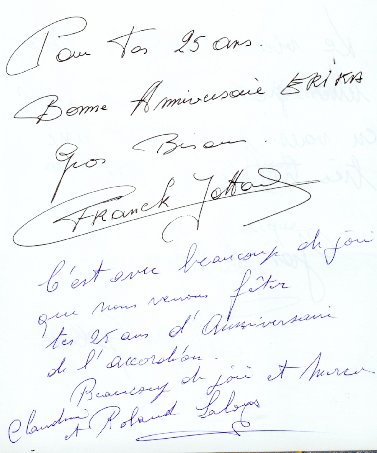 Pour tes 25 ans.
Bonne Anniversaire ERIKA
Gros Bisous.
FRANCK
C'est avec beaucoup de joie
que nous venons fêter
tes 25 ans d'Anniversaire
de l'accordéon.
Beaucoup de joie et Merci
Claudine
et Roland